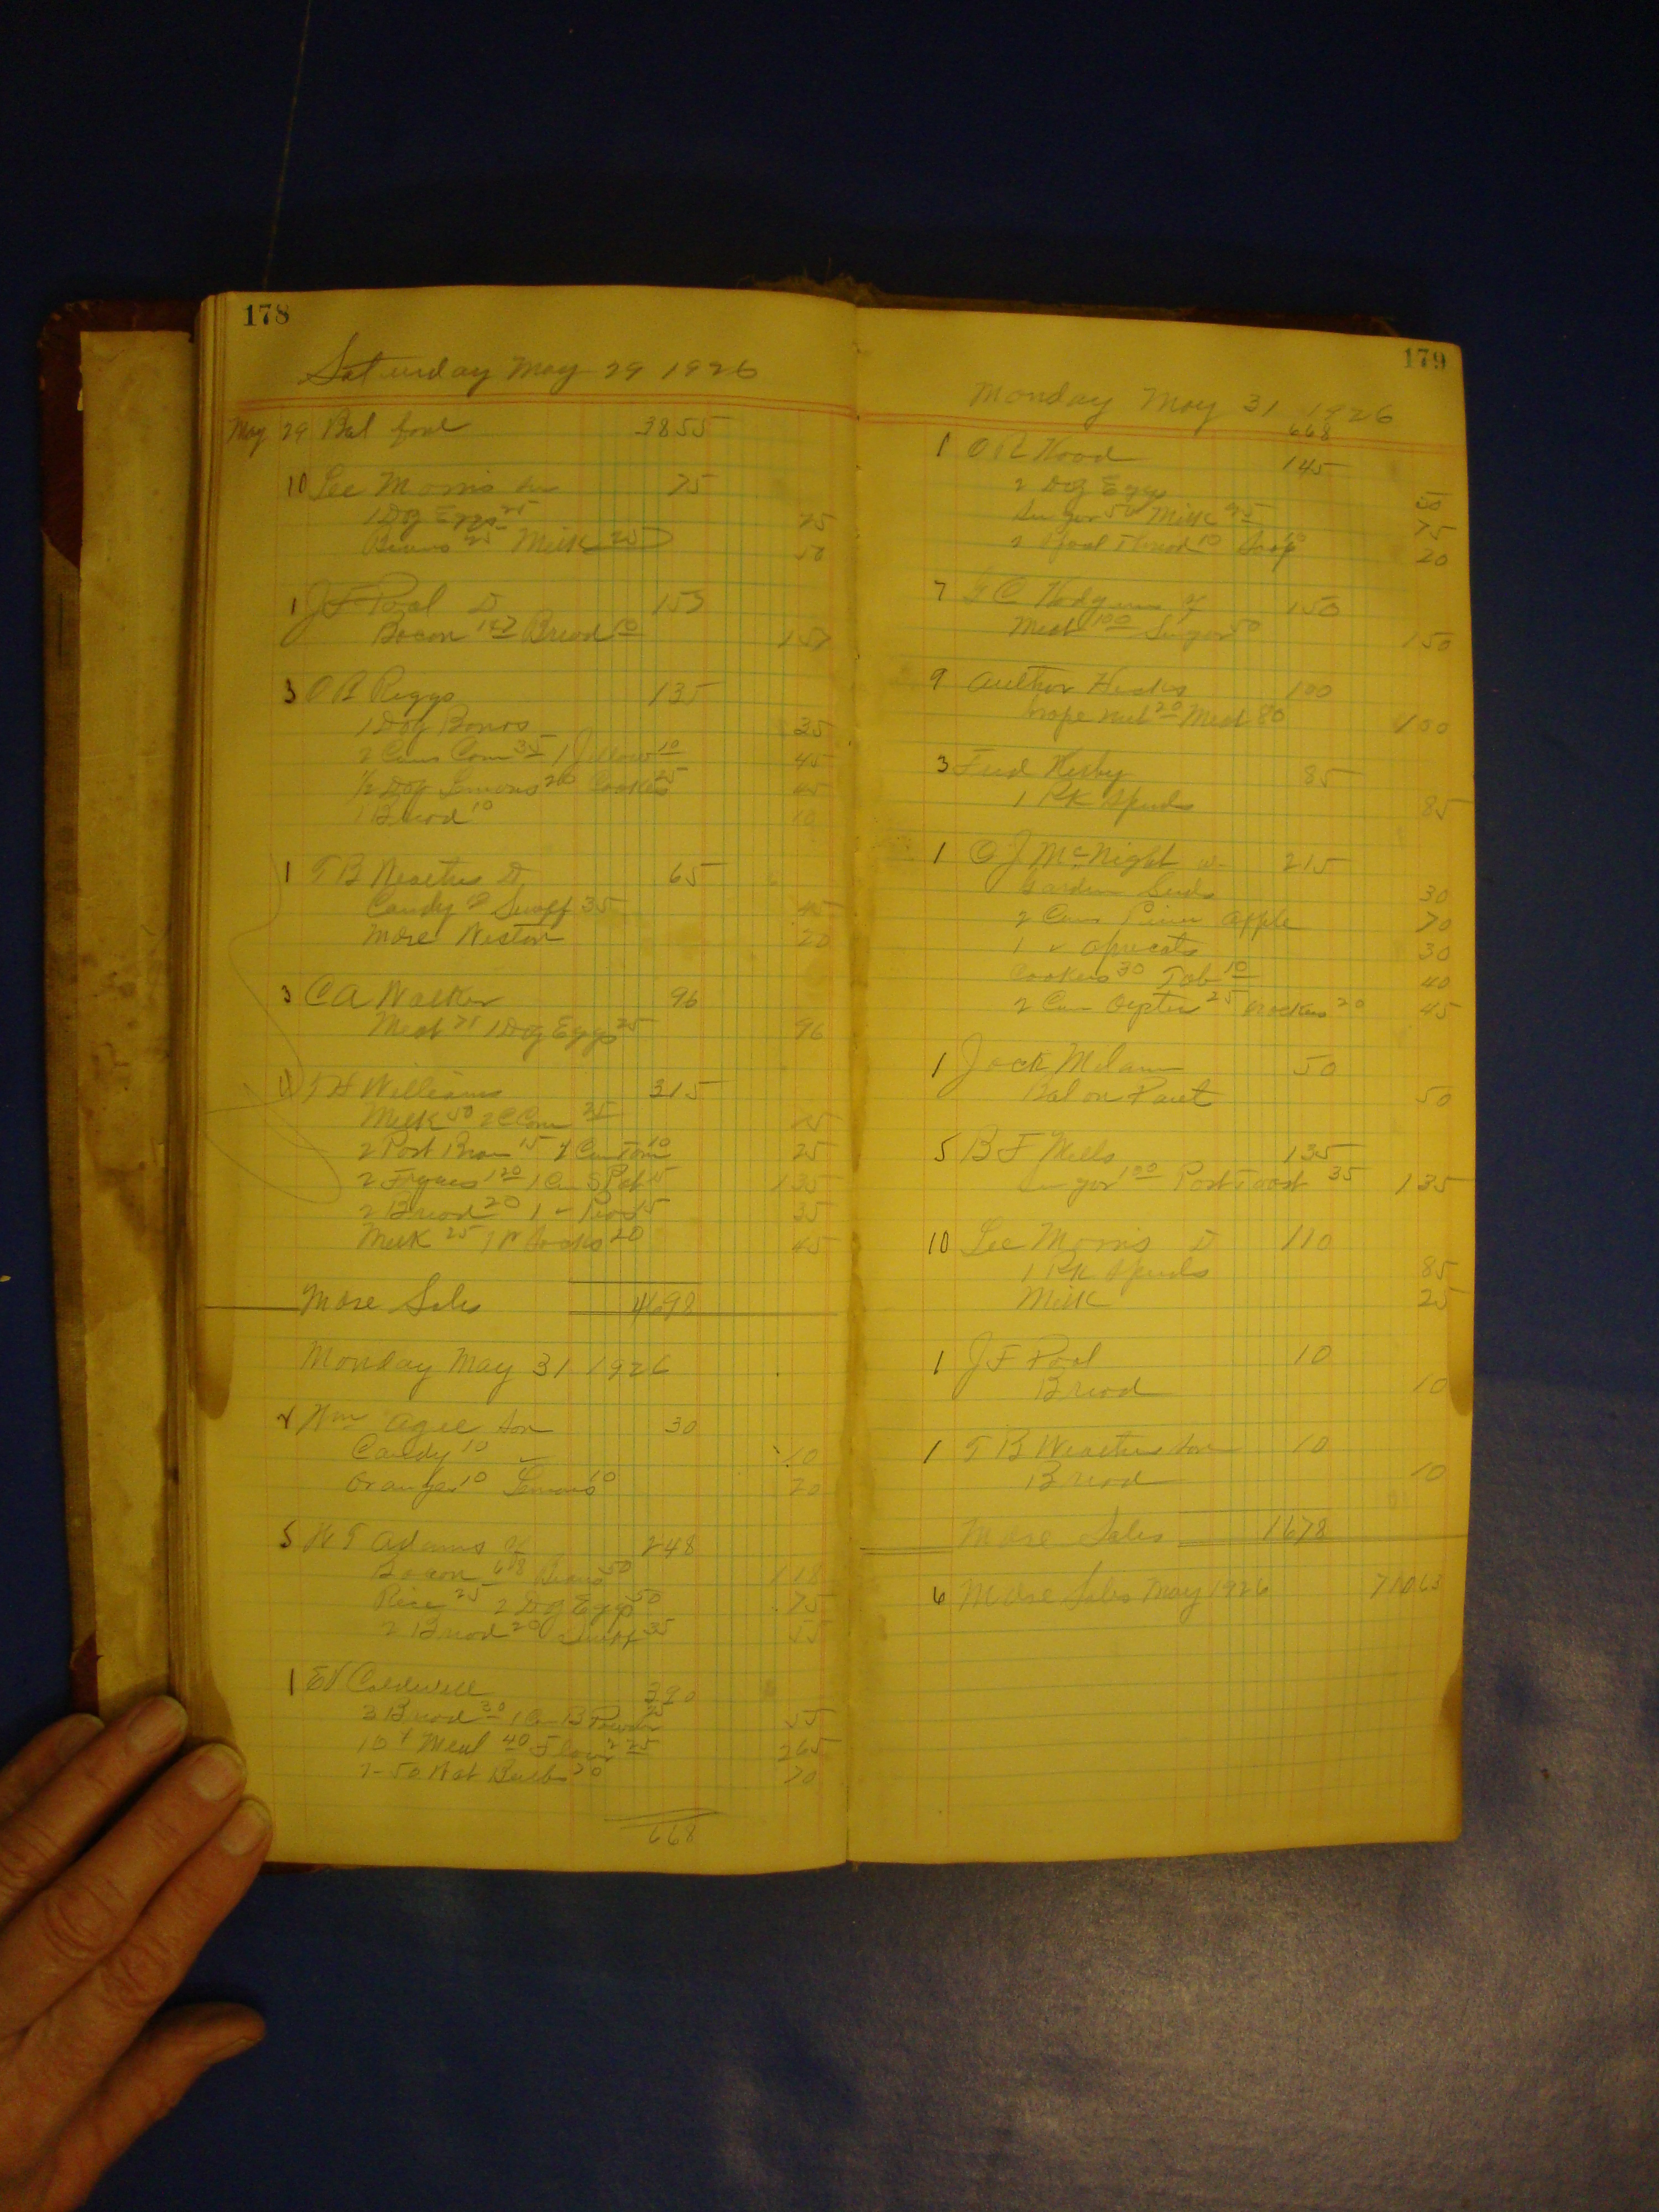 178
Saturday May 29 1926
May 29 Bal ford 3855
10 Lee Morris 75
1 Doz Eggs 25 25
Beans 25 Milk 25 50
1 J F Pool D 157
Bacon 147 Bread 10 157
3 O B Riggs 135
1 Doz 35
2 Cans Corn 35 1 Jellow 10 45
1/2 Doz Lemons 20 Cookes 25 45
1 Bread 10 10
1 T B D 65
Candy Snuff 35 45
Mdse 20
3 C A Walker 96
Meat 71 1 Doz Eggs 25 96
T H Williams 315
Milk 50 2 C Corn 25 75
2 Post Bran 15 Can Tom 10 25
2 120 1 Can 15 135
2 Bread 20 1 - Peas 15 35
Milk 25 1 Pr Socks 20 45
Mdse Sales 4698
Monday May 31 1926
Wm Agee Son 30
Candy 10 10
Oranges 10 Lemons 10 20
5 W T Adams 248
Bacon 68 Beans 50 118
Rice 25 2 Doz Eggs 50 75
2 Bread 20 Snuff 35 55
1 Ed Caldwell 390
3 Bread 30 1 Can B Powder 25 55
10 # Meal 40 Flour 225 265
2-50 Wat Bulbs 70 70
668
179
Monday May 31 1926
668
1 O R Hood 145
2 Doz Eggs 50
Sugar 50 Milk 25 75
2 Spool Thread 10 Soap 10 20
7 G C 150
Meat 100 Sugar 50 150
9 Author Hicks 100
Grape nut 20 Meat 80 100
3 Fred 85
1 PK Spuds 85
1 O J McNight 215
Garden Seeds 30
2 Cans Pine Apple 70
1 " Apricots 30
Cookies 30 Tob 10 40
2 Can Oyster 25 Crackers 20 45
1 Jack Milam 50
Bal on Paint 50
5 B F Mells 135
Sugar 100 Post Toast 35 135
10 Lee Morris D 110
1 PK Spuds 85
Milk 25
1 J F Pool 10
Bread 10
1 T B Son 10
Bread 10
Mdse Sales 1678
6 Mdse Sales May 1926